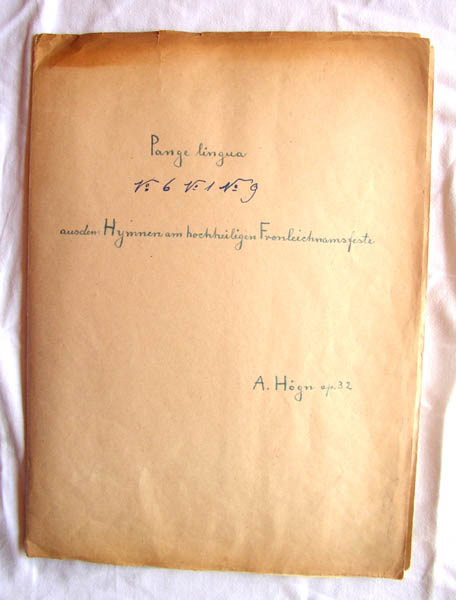 Pange lingua
No 6 No 1 No 9
ausdem Hymnen am hochheiligen Fronleichnamsfeste
A. Högn op. 32